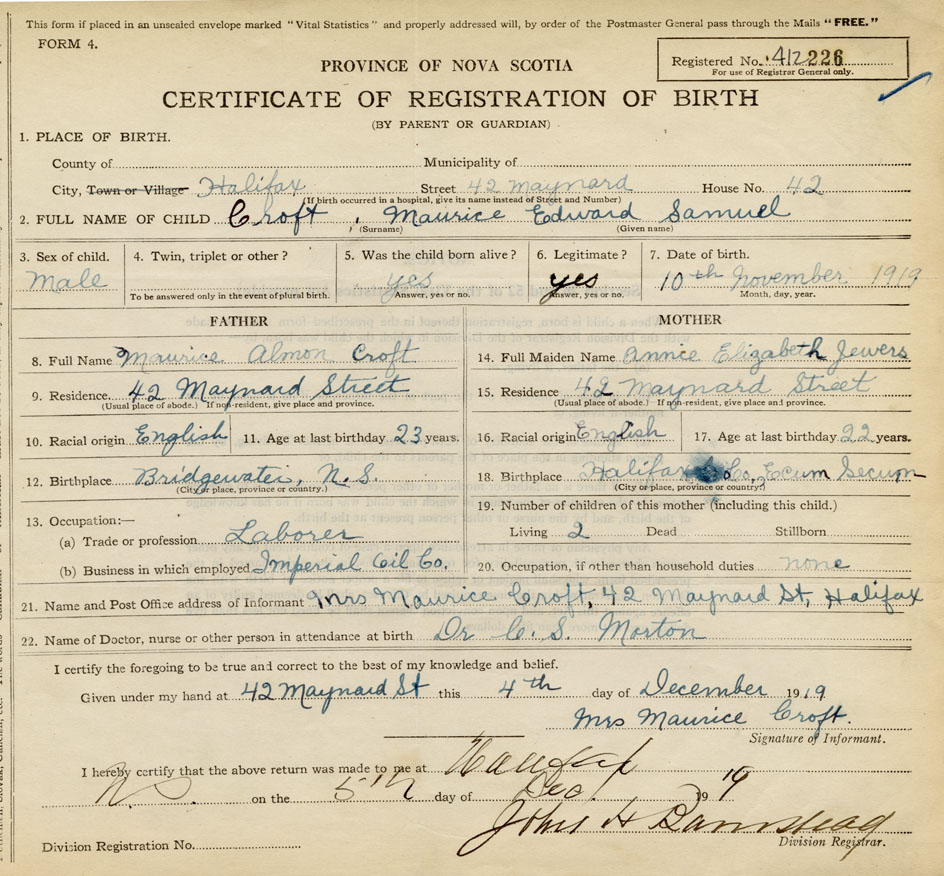 This form if placed in an unsealed envelope marked "Vital Statistics" and properly addressed will, by order of the Postmaster General pass through the Mails "FREE."
FORM 4.
Registered No. 412226
For use of Registrar General only.
PROVINCE OF NOVA SCOTIA
CERTIFICATE OF REGISTRATION OF BIRTH
(BY PARENT OR GUARDIAN)
1. PLACE OF BIRTH.
County of Municipality of
City, Town or Village Halifax Street 42 Maynard House No. 42
(If birth occurred in a hospital, give its name instead of Street and Number)
2. FULL NAME OF CHILD Croft, Maurice Edward Samuel
(Surname) (Given name)
3. Sex of child. 4. Twin, triplet or other? 5. Was the child born alive? 6. Legitimate? 7. Date of birth.
Male yes yes 10th November 1919
To be answered only in the event of plural birth. Answer, yes or no. Answer, yes or no. Month, day, year.
FATHER
8. Full Name Maurice Almon Croft
9. Residence. 42 Maynard Street
(Usual place of abode.) If non-resident, give place and province.
10. Racial origin English 11. Age at last birthday 23 years.
12. Birthplace Bridgewater, N.S.
(City or place, province or country.)
13. Occupation:—
(a) Trade or profession Laborer
(b) Business in which employed Imperial Oil Co.
MOTHER
14. Full Maiden Name Annie Elizabeth Jewers
15. Residence 42 Maynard Street
(Usual place of abode.) If non-resident, give place and province.
16. Racial origin English 17. Age at last birthday 22 years.
18. Birthplace Halifax Co, Ecum Secum
(City or place, province or country.)
19. Number of children of this mother (including this child.)
Living 2 Dead Stillborn
20. Occupation, if other than household duties none
21. Name and Post Office address of Informant Mrs Maurice Croft, 42 Maynard St, Halifax
22. Name of Doctor, nurse or other person in attendance at birth Dr C. S. Morton
I certify the foregoing to be true and correct to the best of my knowledge and belief.
Given under my hand at 42 Maynard St this 4th day of December 1919
Mrs Maurice Croft.
Signature of Informant.
I hereby certify that the above return was made to me at Halifax
N.S. on the 5th day of Dec. 1919
John H Barnstead
Division Registration No. Division Registrar.